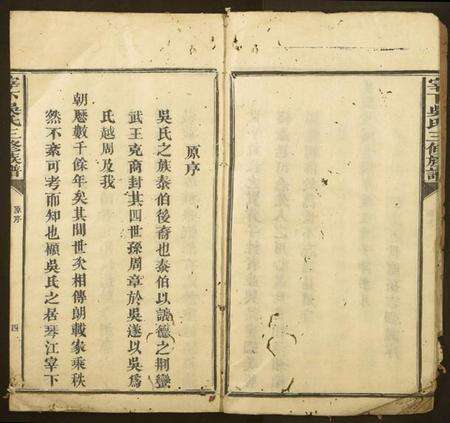 原序
吳氏之族泰伯後裔也泰伯以讓德之荆蠻
武王克商封其四世孫周章於吳遂以吳為
氏越周及我
朝歷數千餘年矣其間世次相傳朗載家乘秩
然不紊可考而知也顧吳氏之居琴江宰下
宰下吳氏三修族譜
原序
四
宰下吳氏三修族譜